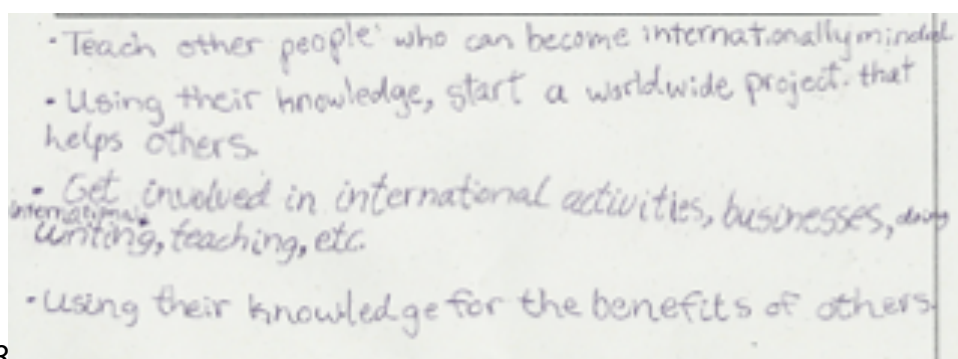 · Teach other people who can become internationally minded
· Using their knowledge, start a worldwide project. that
helps others.
· Get involved in international activities, businesses, doing
international
writing, teaching, etc.
· Using their knowledge for the benefits of others.